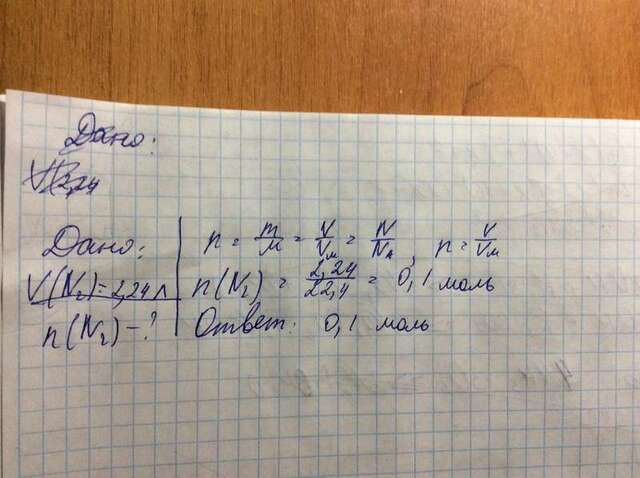 Дано:
Дано:
V(N₂)=2,24 л
n(N₂)-?
n = m/M = V/Vм = N/NA, n = V/Vм
n(N₂) = 2,24/22,4 = 0,1 моль
Ответ: 0,1 моль